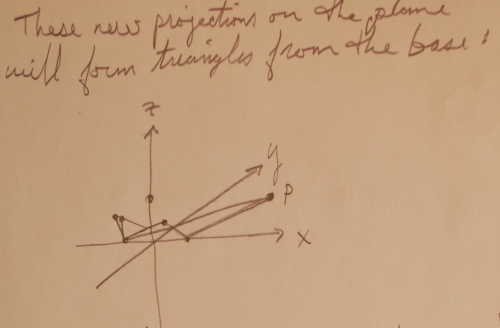 These new projections on the plane
will form triangles from the base:
z
y
P
x